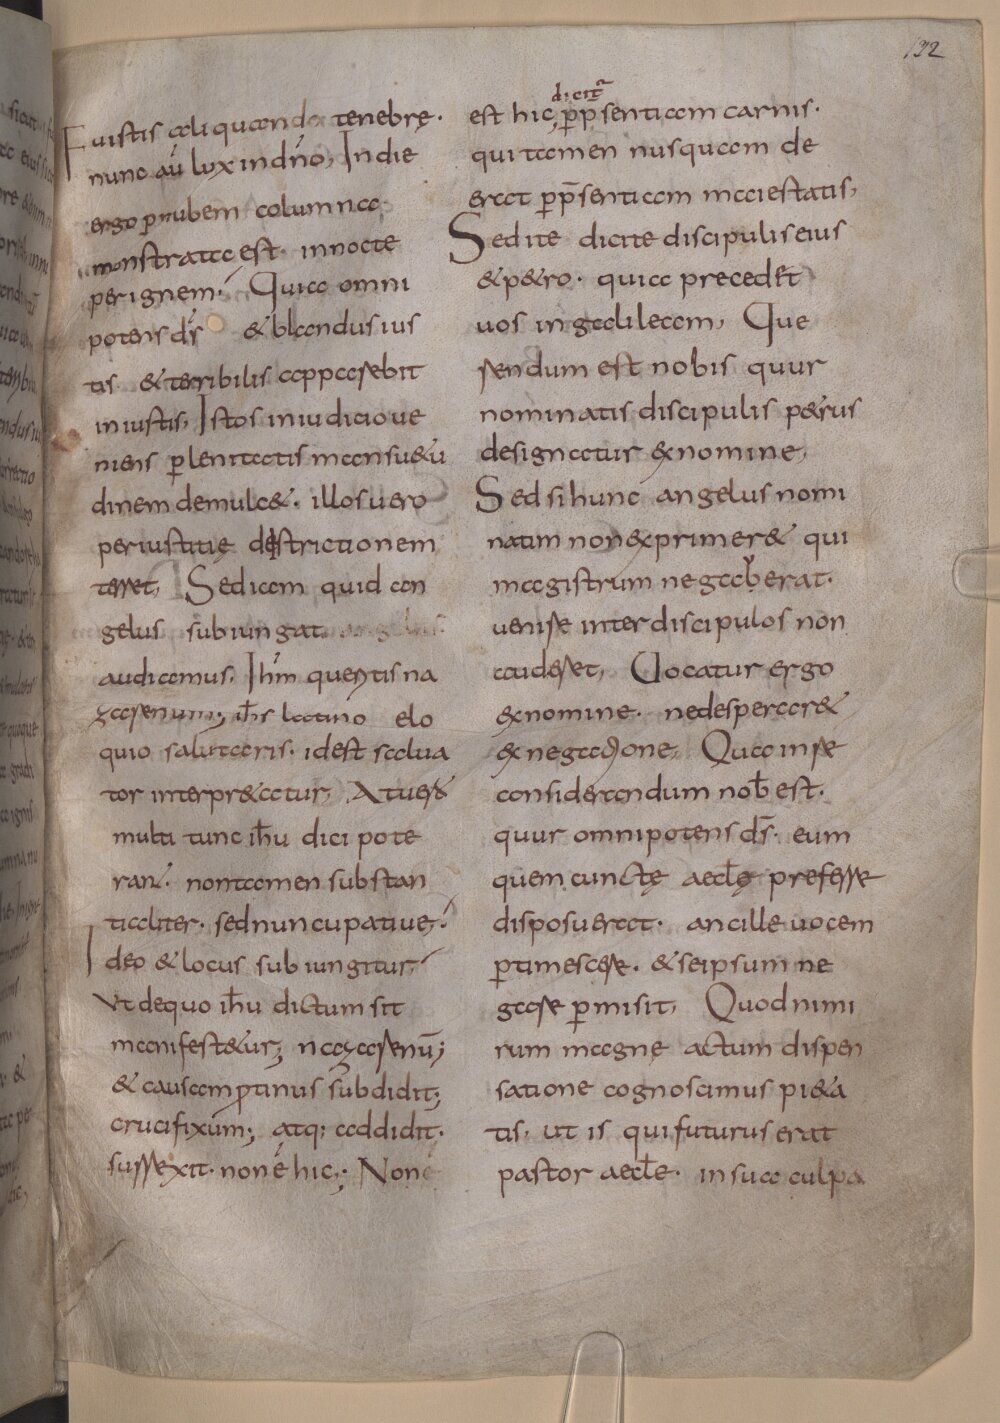 132
Fuistis aliquando tenebrę.
nunc aū lux in dn̄o, In die
ergo p nubem columna
monstrata est. in nocte
per ignem. Quia omni
potens d̄s & blandus ius
tis & terribilis apparebit
iniustis, Istos in iudicio ue
niens p lenitatis mansu&u
dinem demulc&. illos uero
per iustitię destrictionem
terret, Sed iam quid an
gelus subiungat
audiamus. Ih̄m queritis na
zarenum; ih̄s latino elo
quio salutaris. id est salua
tor interpr&atur, At uero
multi tunc ih̄u dici pote
rant. non tamen substan
tialiter. sed nuncupatiue,
Ideo & locus subiungitur,
Ut de quo ih̄u dictum sit
manifest&ur; nazarenū;
& causam p̱tinus subdidit;
crucifixum; atq; addidit.
surrexit. non ē hic; Non
dicit᷑
est hic, p p̄sentiam carnis.
qui tamen nusquam de
erat p p̄sentiam maiestatis,
Sed ite dicite discipulis eius
& p&ro. quia precedet
uos in galileam, Que
rendum est nobis quur
nominatis discipulis p&rus
designatur ex nomine,
Sed si hunc angelus nomi
natim non exprimer& qui
magistrum negauerat.
uenire inter discipulos non
auderet, Uocatur ergo
ex nomine. ne desperar&
ex negatione, Qua in re
considerandum nob̄ est.
quur omnipotens d̄s. eum
quem cunctę aecłę preferre
disposuerat. ancille uocem
p̱timescere. & se ipsum ne
gare p̱misit, Quod nimi
rum magnę actum dispen
satione cognoscimus pi&a
tis. ut is qui futurus erat
pastor aecłe. in sua culpa